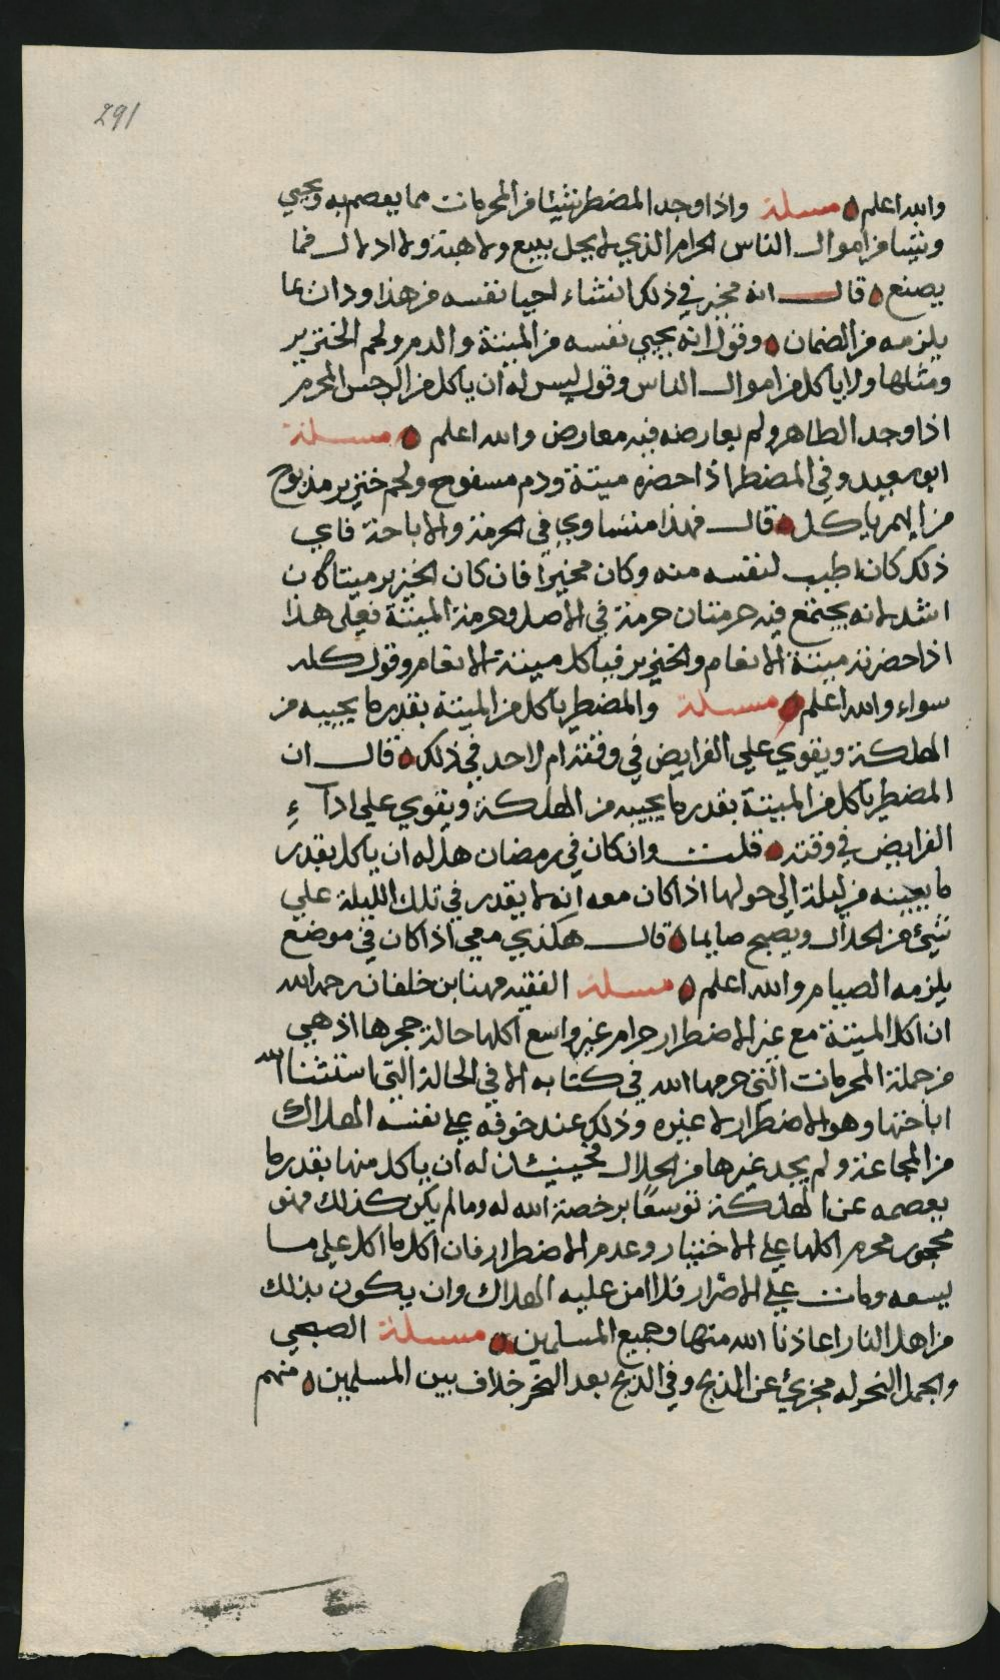 291
والله اعلم مسلة واذا وجد المضطر شيئا من المحرمات مما يعصم به ويحيي
وشيئا من اموال الناس الحرام الذي لا يحل ببيع ولا هبة ولا ادلال فما
يصنع قال انه مخير في ذلك ان شاء احيا نفسه من هذا ودان بما
يلزمه من الضمان وقول انه يحيي نفسه من الميتة والدم ولحم الخنزير
ومثلها ولا ياكل من اموال الناس وقول ليس له ان ياكل من الرجس المحرم
اذا وجد الطاهر ولم يعارضه فيه معارض والله اعلم مسلة
ابو سعيد وفي المضطر اذا حضره ميتة ودم مسفوح ولحم خنزير مذبوح
من ايهم ياكل قال فهذا متساوي في الحرمة والاباحة فاي
ذلك كان اطيب لنفسه منه وكان مخيرا فان كان الخنزير ميتا كان
اشد لانه يجتمع فيه حرمتان حرمة في الاصل وحرمة الميتة فعلى هذا
اذا حضرته ميتة الانعام والخنزير فياكل ميتة الانعام وقول كله
سواء والله اعلم مسلة والمضطر ياكل من الميتة بقدر ما يحييه من
الهلكة ويقوي علي الفرايض في وقته ام لا حد في ذلك قال ان
المضطر ياكل من الميتة بقدر ما يحييه من الهلكة ويقوي علي ادآء
الفرايض في وقته قلت وان كان في رمضان هل له ان ياكل بقدر
ما يحييه من ليلة الي حولها اذا كان معه انه لا يقدر في تلك الليلة علي
شيئ من الحلال ويصبح صايما قال هكذي معي اذا كان في موضع
يلزمه الصيام والله اعلم مسلة الفقيه مهنا بن خلفان رحمه الله
ان اكل الميتة مع غير الاضطرار حرام غير واسع اكلها حالة حجرها اذ هي
من جملة المحرمات التي حرمها الله في كتابه الا في الحالة التي استثنا الله
اباحتها وهو الاضطرار لا غيره وذلك عند خوفه علي نفسه الهلاك
من المجاعة ولم يجد غيرها من الحلال فحينئذ له ان ياكل منها بقدر ما
يعصمه عن الهلكة توسعا برخصة الله له وما لم يكن كذلك فهو
محجور محرم اكلها علي الاختيار وعدم الاضطرار فان اكل ما اكل علي ما
يسعه ومات علي الاصرار فلا امن عليه الهلاك وان يكون بذلك
من اهل النار اعاذنا الله منها وجميع المسلمين مسلة الصبحي
والجمل النحر له مجزئ عن الذبح وفي الذبح بعد النحر خلاف بين المسلمين منهم